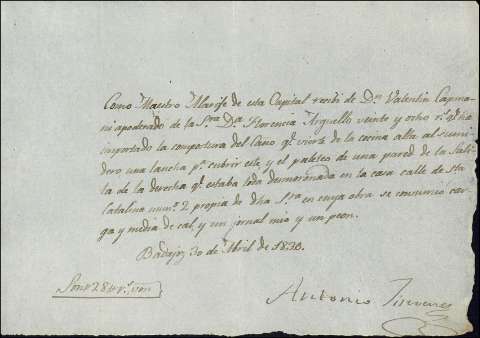 Como Maestro Alarife de esta Capital recibi de Dn. Valentin Capma-
ni apoderado de la Sra. Da. Florencia Arguello veinte y ocho rs. qe. ha
importado la compostura del Caño qe. vierte de la cocina alta al sumi
dero una lancha pa. cubrir este y el paleteo de una pared de la Sali-
ta de la derecha qe. estaba toda desmoronada en la casa calle de Sta.
Catalina numo. 2 propia de dha Sra. en cuya obra se consumio car-
ga y media de cal, y un jornal mio y un peon.
Badajoz 30 de Abril de 1830.
Son 28 rs. von.
Antonio